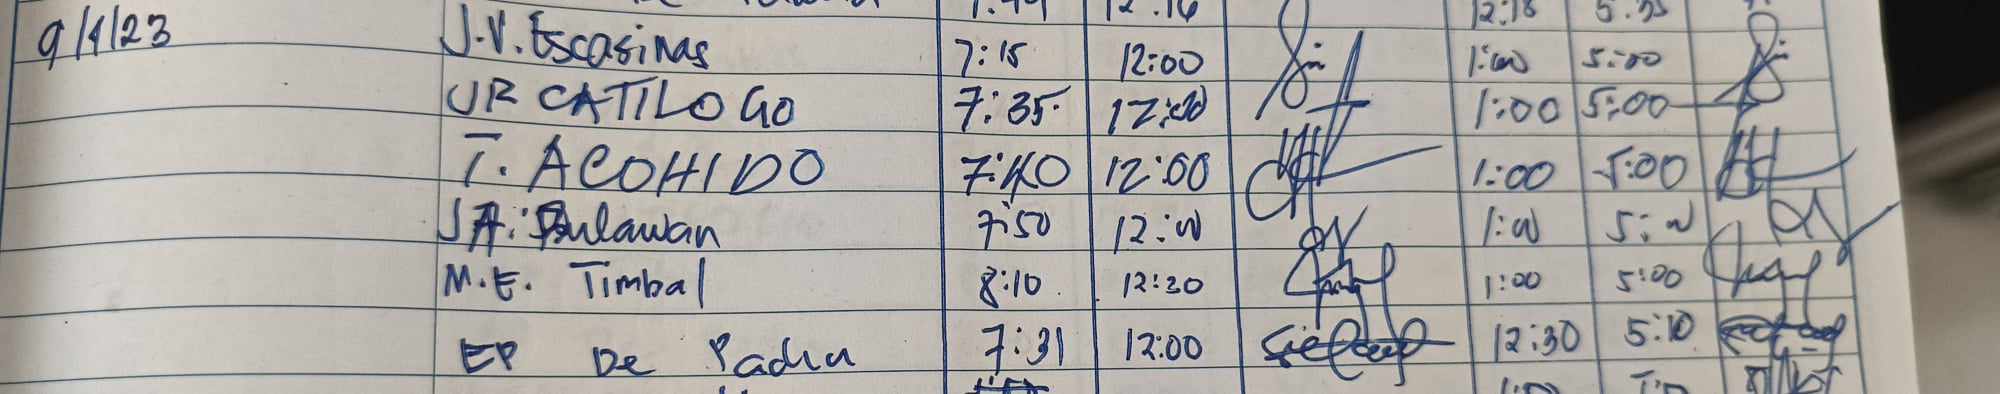 12:16 12:18 5:35
9/1/23 J.V. Escasinas 7:15 12:00 1:00 5:00
JR CATILOGO 7:35 12:00 1:00 5:00
T. ACOHIDO 7:40 12:00 1:00 5:00
J A. Bulawan 7:50 12:00 1:00 5:00
M.E. Timbal 8:10 12:30 1:00 5:00
EP De Padua 7:31 12:00 12:30 5:10